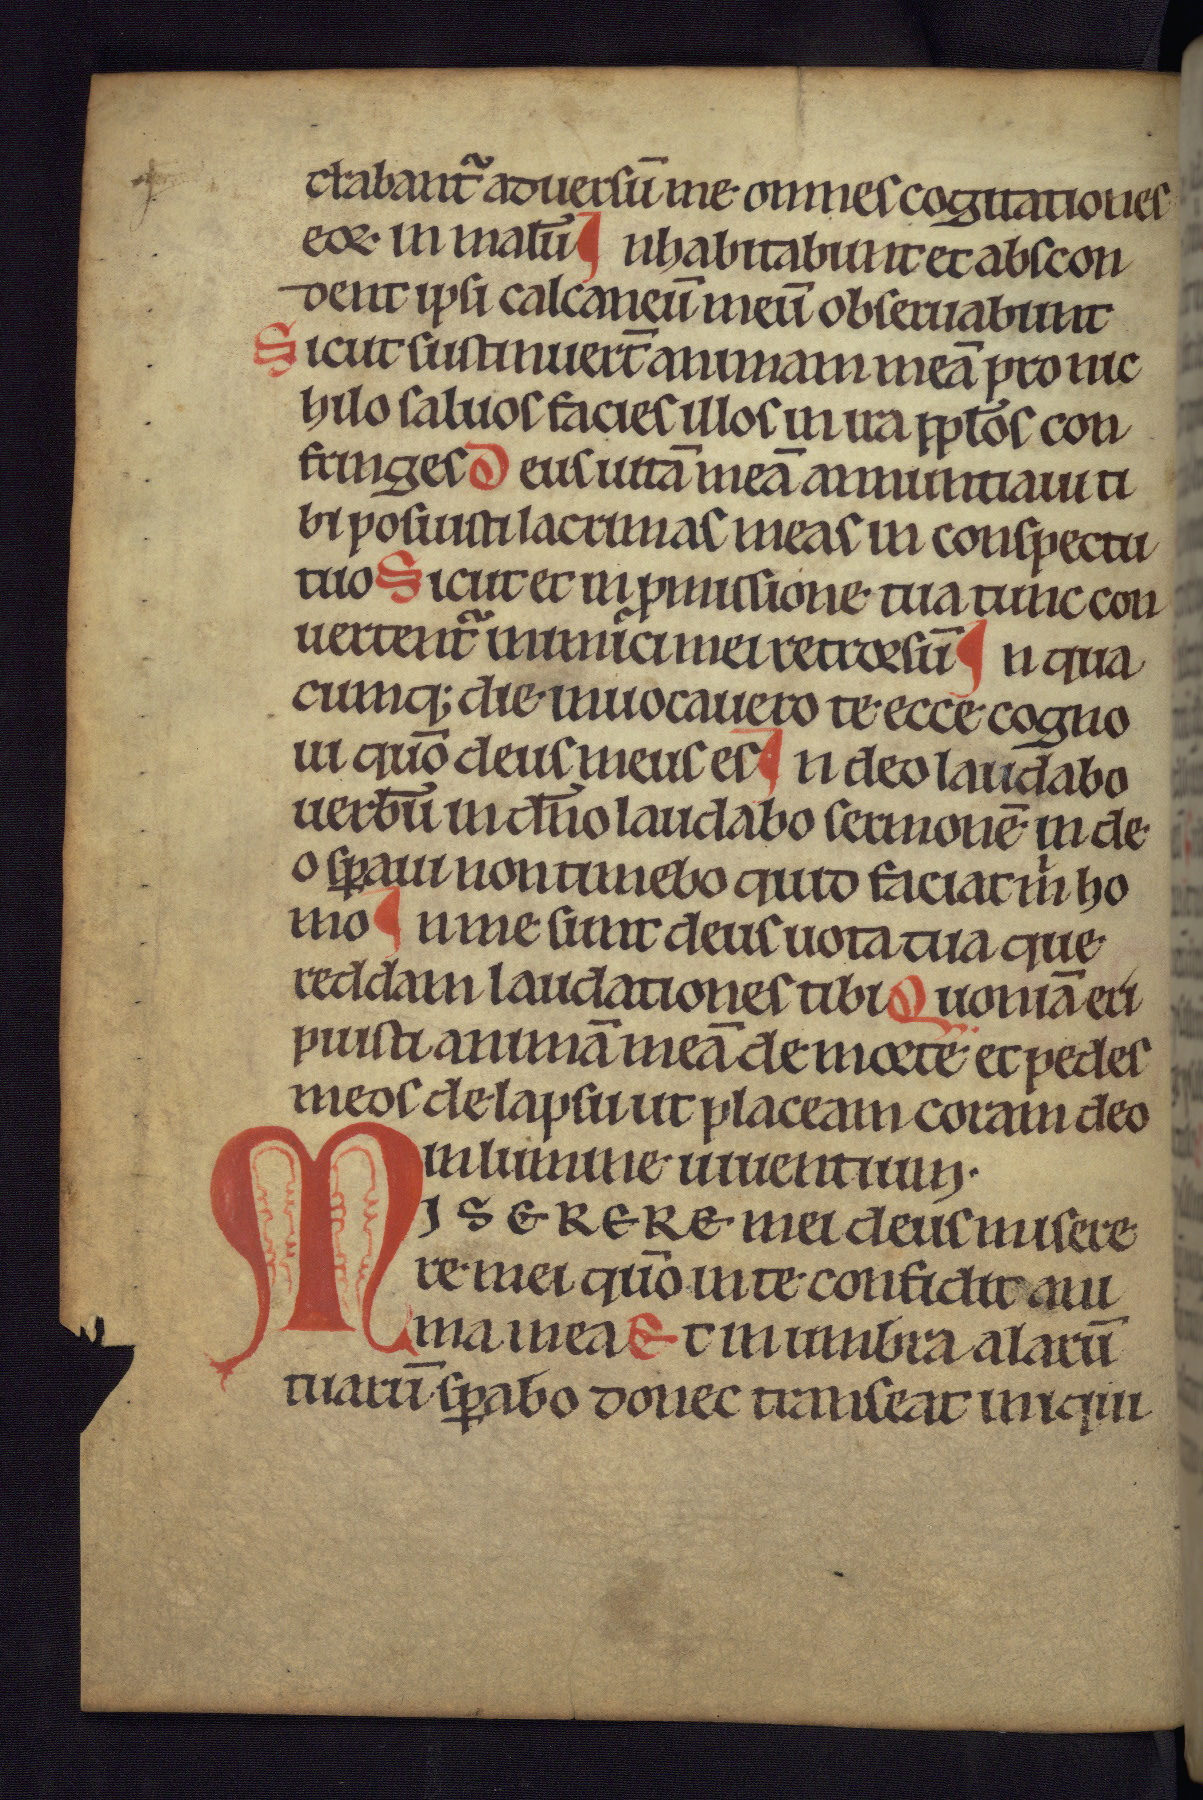 ctabant᷑ aduersū me omnes cogitationes
eoꝝ in malū Inhabitabunt et abscon
dent ipsi calcaneū meū obseruabunt
Sicut sustinuer̄t animam meā pro nic
hilo saluos facies illos in ira ppl̄os con
fringes Deus uitā meā annuntiaui ti
bi posuisti lacrimas meas in conspectu
tuo Sicut et in ꝓmissione tua tunc con
uertent᷑ inimici mei retrorsū In qua
cumq; die inuocauero te ecce cogno
ui qūo deus meus es In deo laudabo
uerbū in dn̄o laudabo sermonē in de
o sꝑaui non timebo quid faciat mͥ ho
mo In me sunt deus uota tua que
reddam laudationes tibi Quoniā eri
puisti animā meā de morte et pedes
meos de lapsu ut placeam coram deo
in lumine uiuentium.
MISERERE mei deus misere
re mei qūo in te confidit ani
ma mea Et in umbra alarū
tuarū sꝑabo donec transeat iniqui